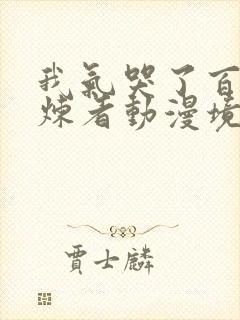 我氣哭了百
煉者動漫境
賈士麟